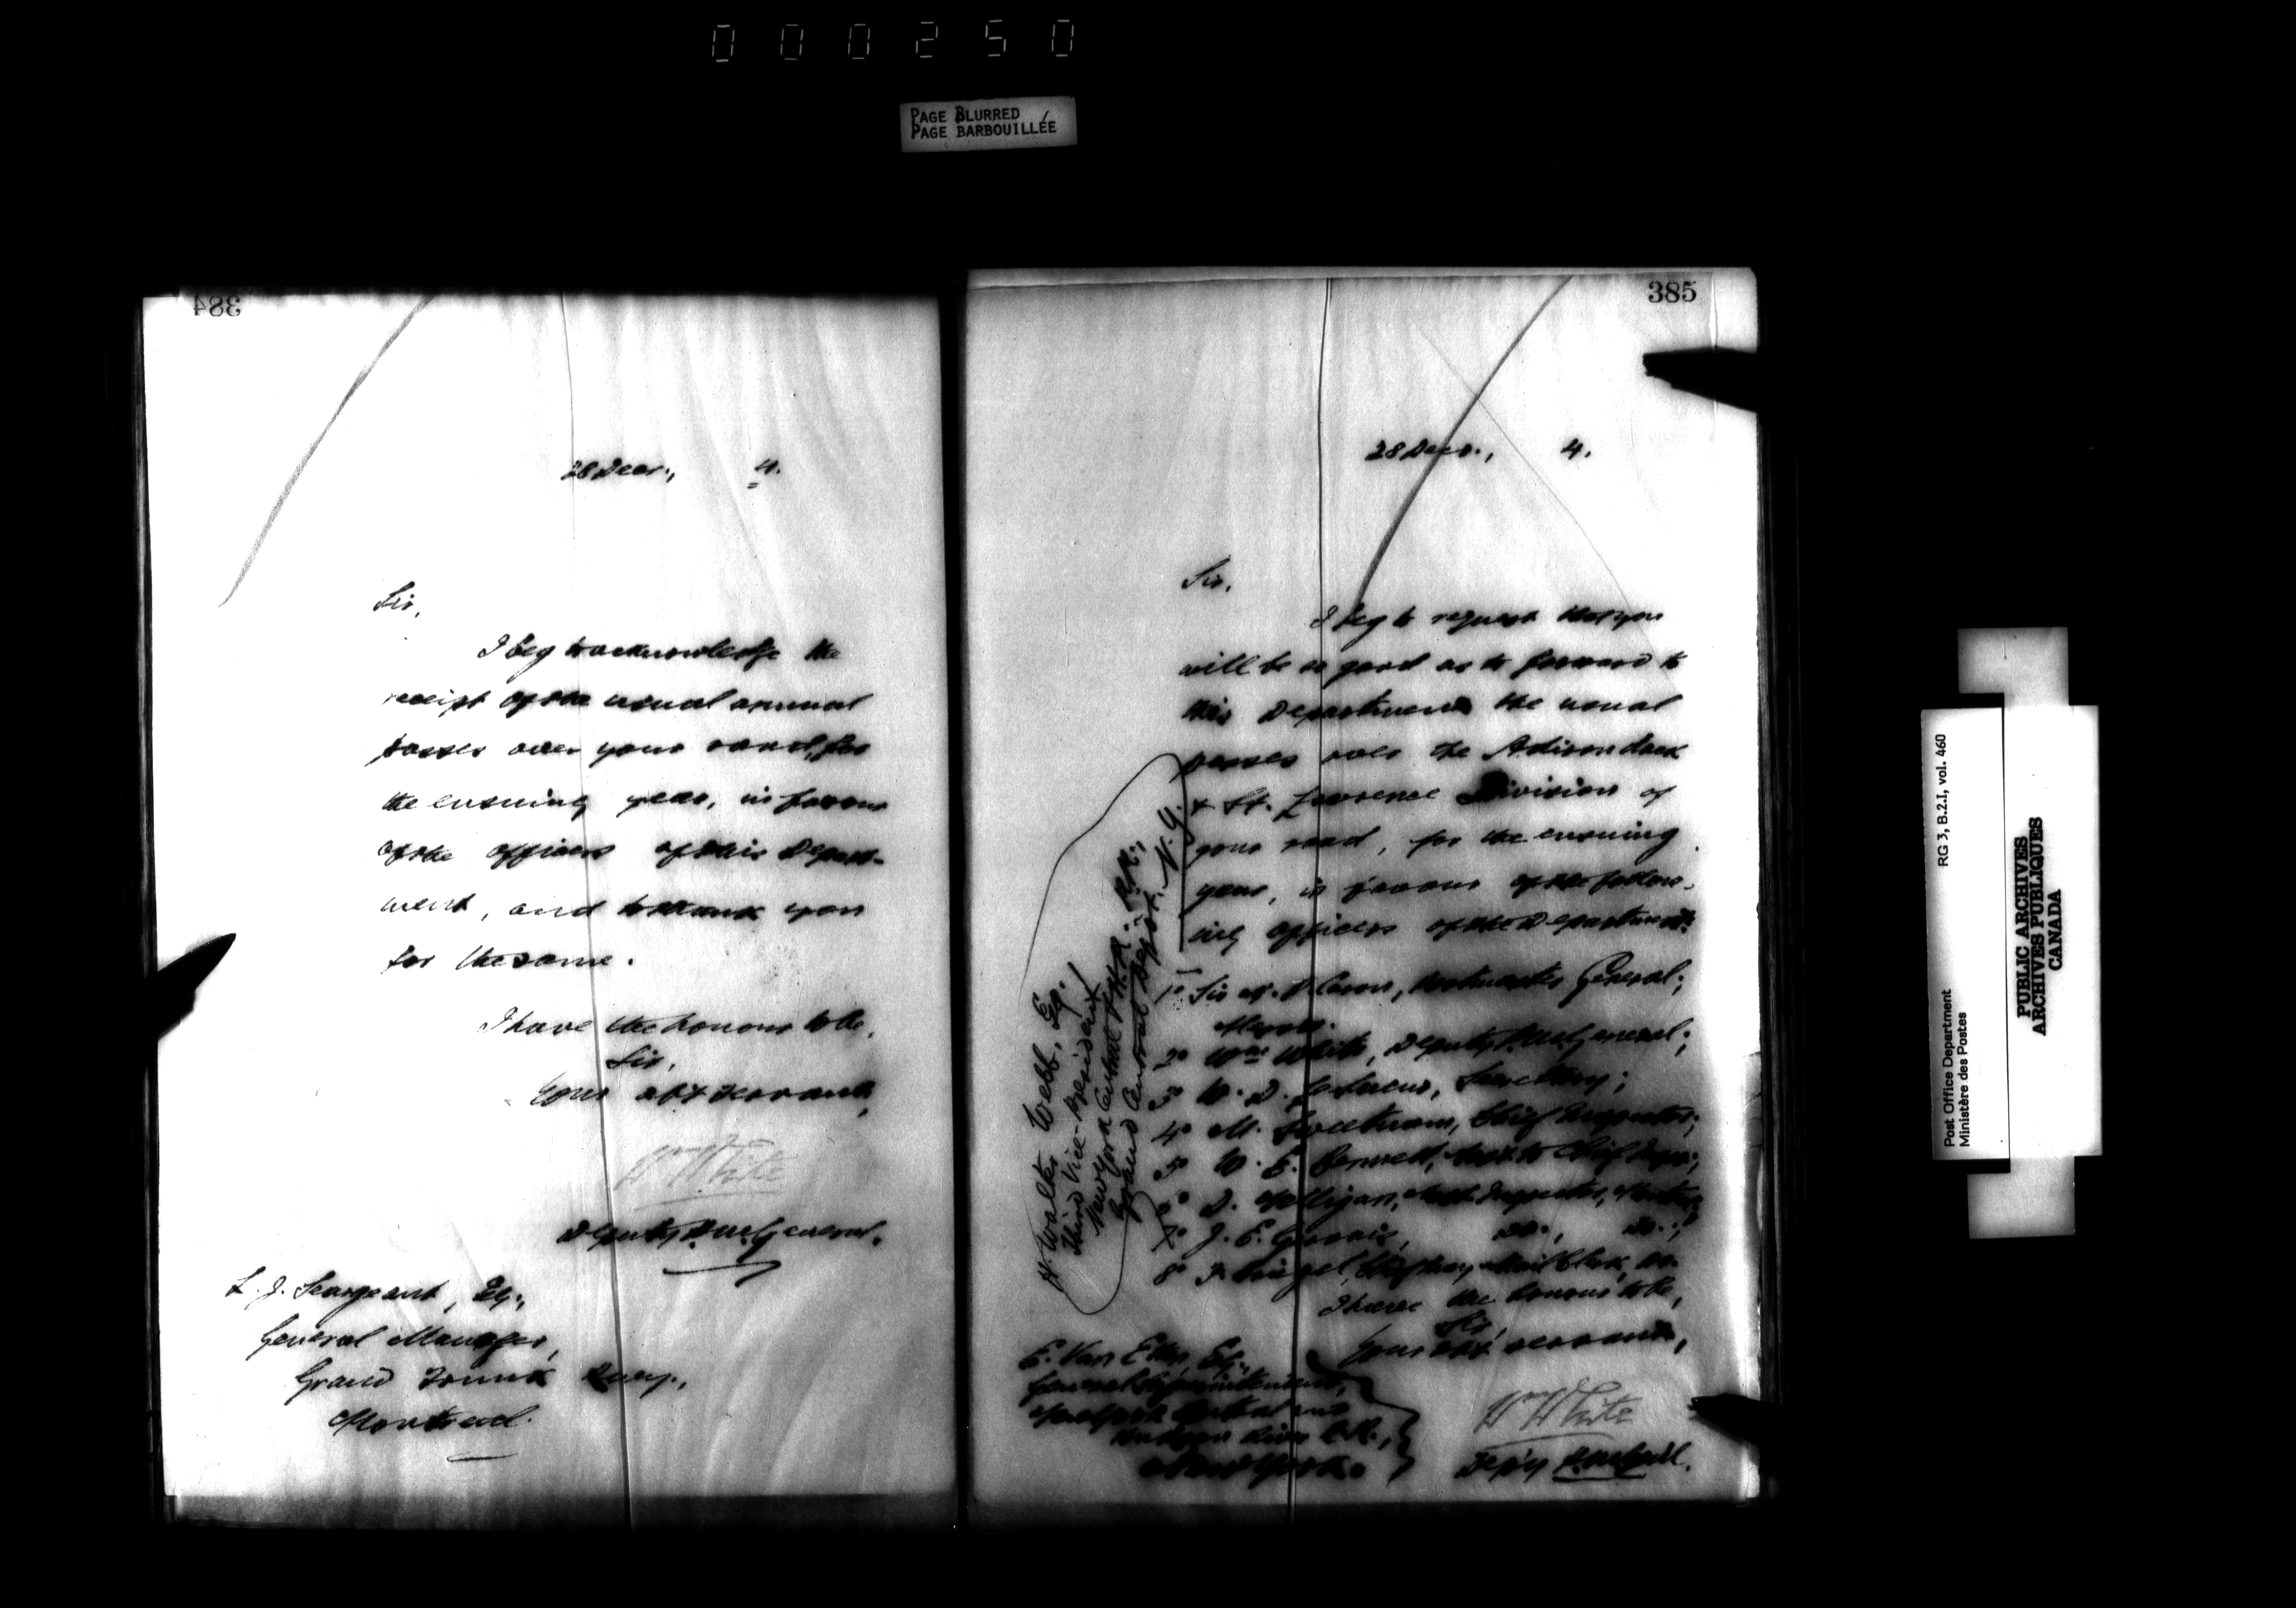 000250
PAGE BLURRED
PAGE BARBOUILLÉE
384
28 Decr., 4.
Sir,
I beg to acknowledge the
receipt of the usual annual
passes over your road, for
the ensuing year, in favour
of the officers of this Depart-
ment, and to thank you
for the same.
I have the honour to be,
Sir,
Your obt servant,
Wm White
Deputy P.M. General.
L. J. Seargeant, Esq.,
General Manager,
Grand Trunk Rway.,
Montreal.
385
28 Decr., 4.
Sir,
I beg to request that you
will be so good as to forward to
this Department the usual
passes over the Adirondack
& St. Lawrence Division of
your road, for the ensuing
year, in favour of the follow-
ing officers of the Department:
1° Sir A. P. Caron, Postmaster General;
Messrs.
2° Wm White, Deputy P.M. General;
3° W. D. LeSueur, Secretary;
4° M. Sweetnam, Chief Inspector;
5° W. E. Bennett, Asst to Chief Inspr.;
6° D. Asst. Inspector,
7° J. E. Gervais, Do., Do.;
8° Railway Mail Clerk, Do.
I have the honour to be,
Sir,
Your obt servant,
Wm White
Dep'y P.M. Gen'l.
E. Van Etten, Esq.,
General Superintendent,
New York Central and
Hudson River R.R.,
New York.
H. Walter Webb, Esq.,
Third Vice-President
New York Central & H.R. R.R.,
Grand Central Depot, N.Y.
Post Office Department RG 3, B.2.I, vol. 460
Ministère des Postes
PUBLIC ARCHIVES
ARCHIVES PUBLIQUES
CANADA